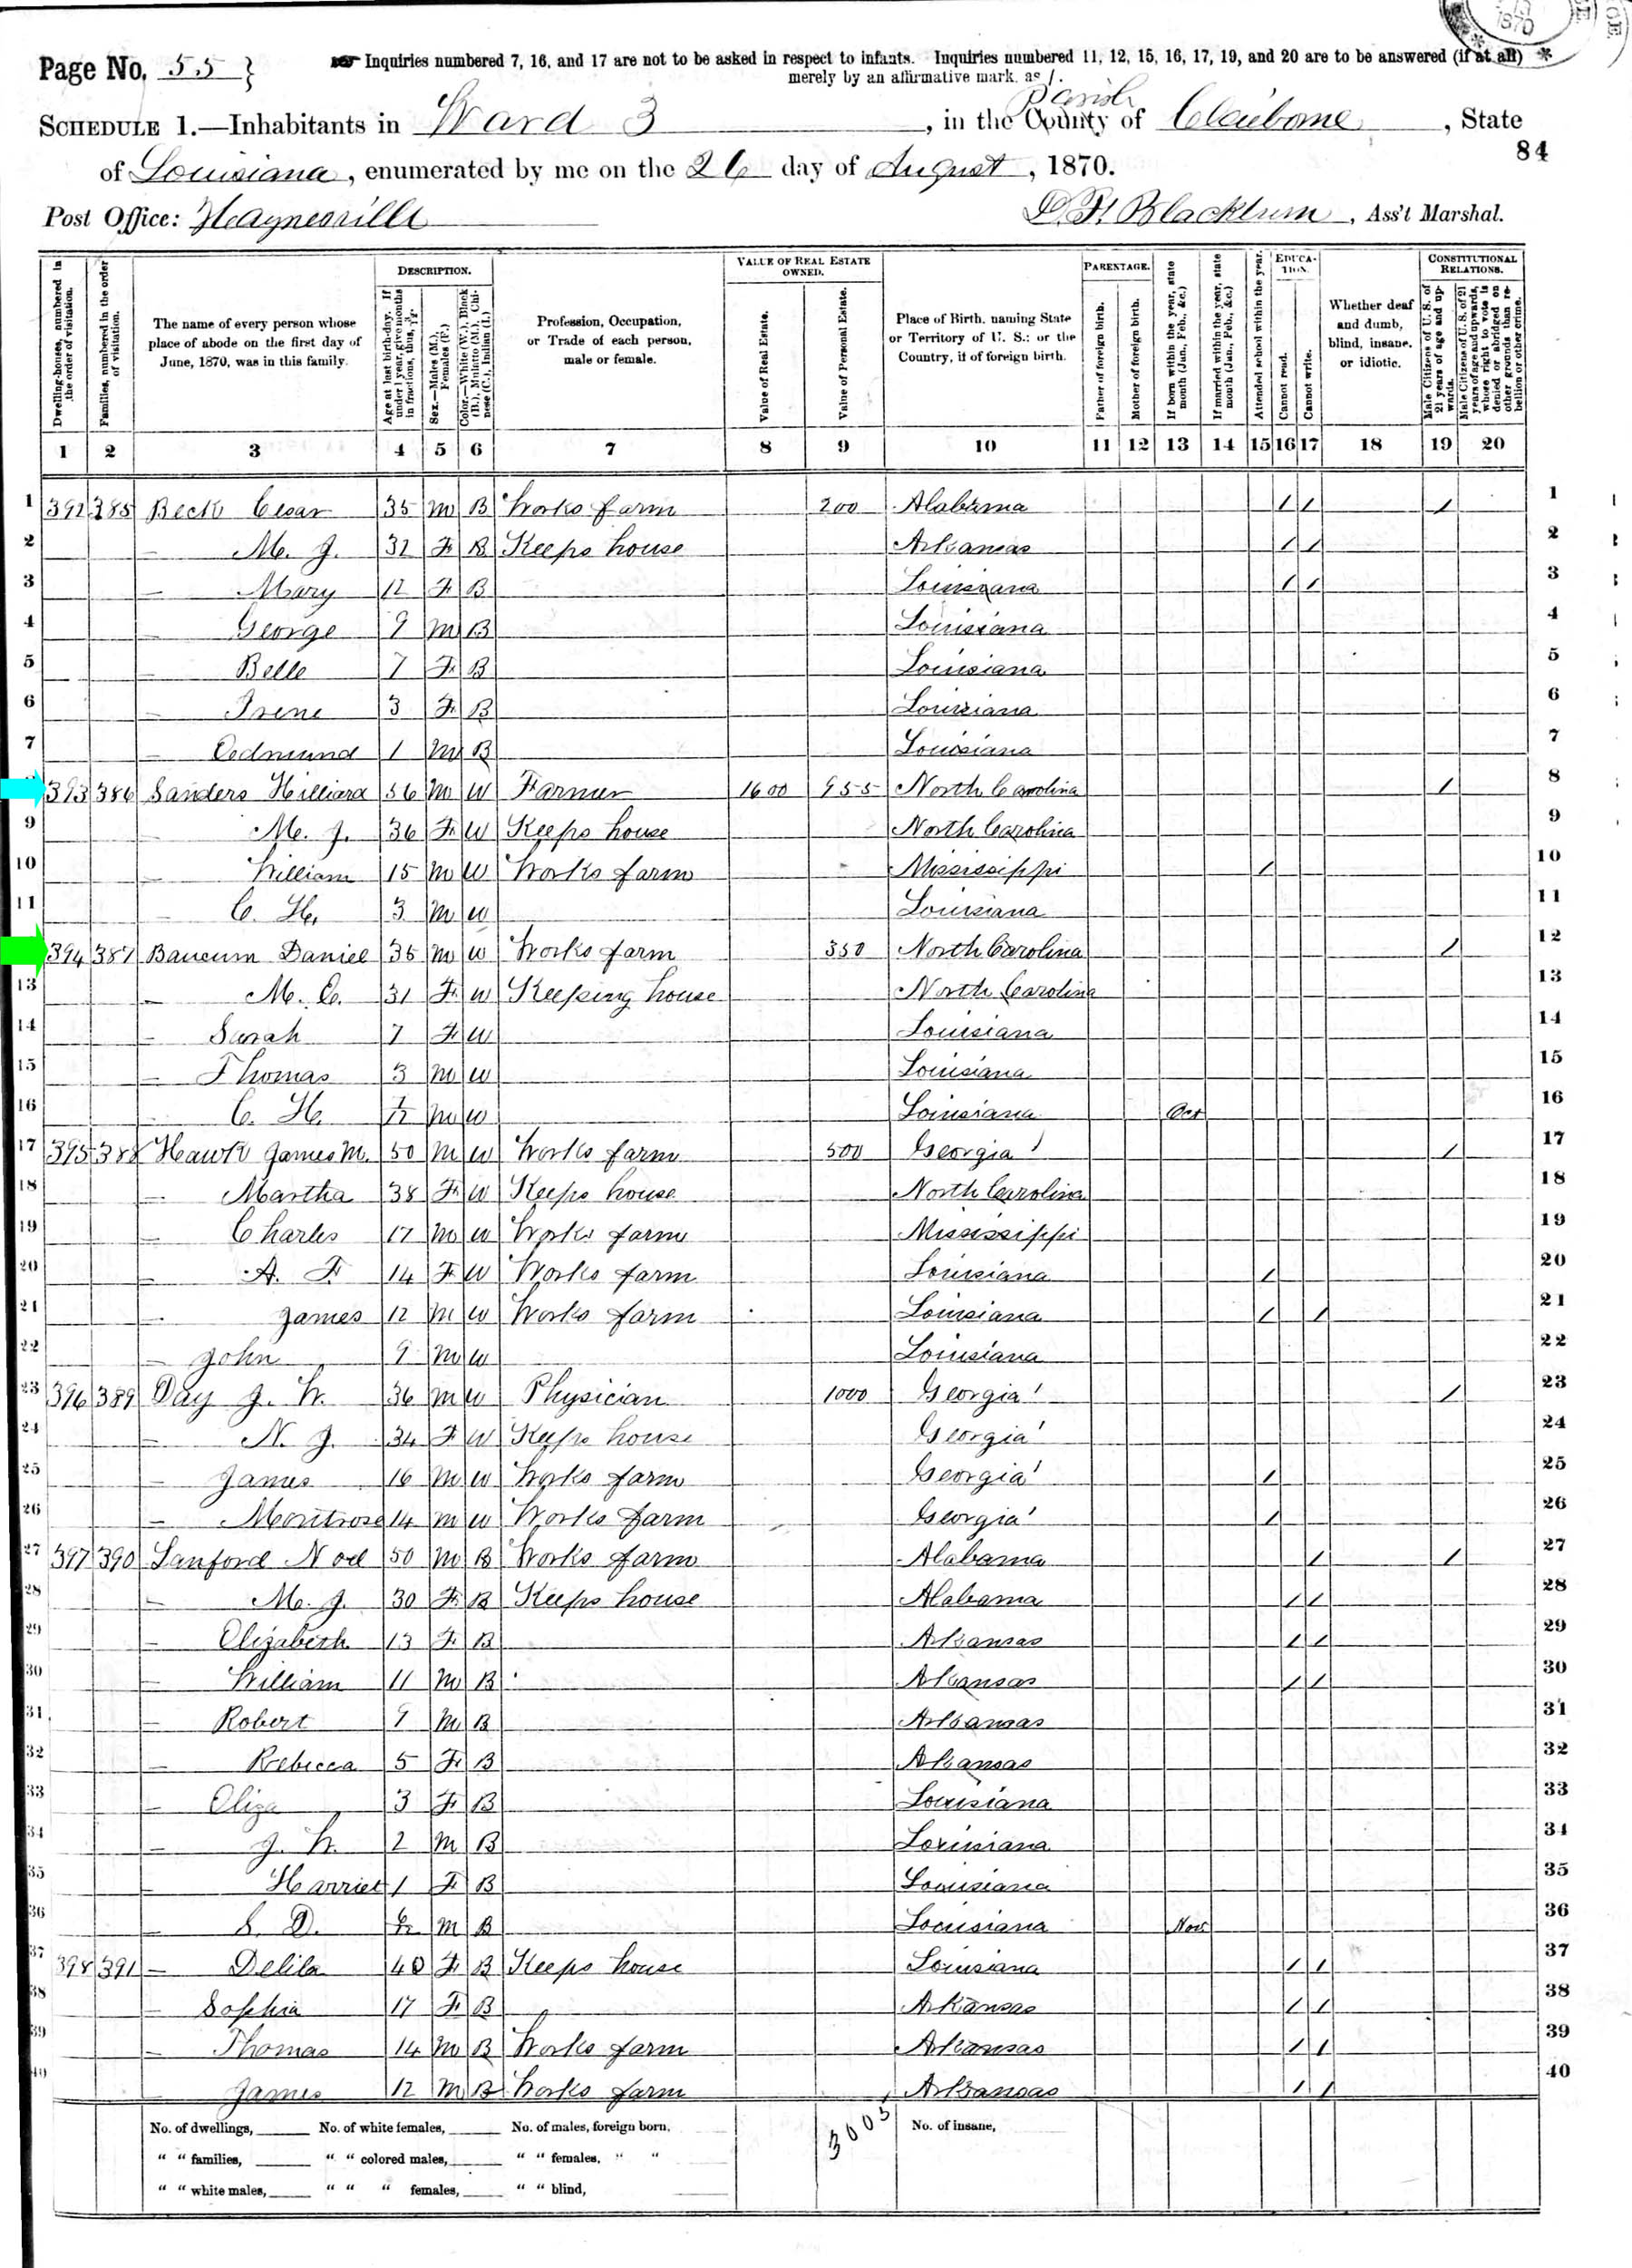 1870
Page No. 55 } Inquiries numbered 7, 16, and 17 are not to be asked in respect to infants. Inquiries numbered 11, 12, 15, 16, 17, 19, and 20 are to be answered (if at all)
merely by an affirmative mark, as /.
Parish
SCHEDULE 1.—Inhabitants in Ward 3, in the County of Claiborne, State
84
of Louisiana, enumerated by me on the 26 day of August, 1870.
Post Office: Haynesville Blackburn, Ass't Marshal.
DESCRIPTION. VALUE OF REAL ESTATE OWNED. PARENTAGE. EDUCATION. CONSTITUTIONAL RELATIONS.
Dwelling-houses, numbered in the order of visitation. Families, numbered in the order of visitation. The name of every person whose place of abode on the first day of June, 1870, was in this family. Age at last birth-day. If under 1 year, give months in fractions, thus, 3/12. Sex.—Males (M.), Females (F.) Color.—White (W.), Black (B.), Mulatto (M.), Chinese (C.), Indian (I.) Profession, Occupation, or Trade of each person, male or female. Value of Real Estate. Value of Personal Estate. Place of Birth, naming State or Territory of U. S.; or the Country, if of foreign birth. Father of foreign birth. Mother of foreign birth. If born within the year, state month (Jan., Feb., &c.) If married within the year, state month (Jan., Feb., &c.) Attended school within the year. Cannot read. Cannot write. Whether deaf and dumb, blind, insane, or idiotic. Male Citizens of U. S. of 21 years of age and upwards. Male Citizens of U. S. of 21 years of age and upwards, whose right to vote is denied or abridged on other grounds than rebellion or other crime.
1 2 3 4 5 6 7 8 9 10 11 12 13 14 15 16 17 18 19 20
1 392 385 Beck Cesar 35 M B Works farm 200 Alabama / / / 1
2 — M. J. 32 F B Keeps house Arkansas / / 2
3 — Mary 12 F B Louisiana / / 3
4 — George 9 M B Louisiana 4
5 — Belle 7 F B Louisiana 5
6 — Irene 3 F B Louisiana 6
7 — Oedmund 1 M B Louisiana 7
393 386 Sanders Hilliard 56 M W Farmer 1600 955 North Carolina / 8
9 — M. J. 36 F W Keeps house North Carolina 9
10 — William 15 M W Works farm Mississippi / 10
11 — C. H. 3 M W Louisiana 11
394 387 Baucum Daniel 35 M W Works farm 350 North Carolina / 12
13 — M. C. 31 F W Keeping house North Carolina 13
14 — Sarah 7 F W Louisiana 14
15 — Thomas 3 M W Louisiana 15
16 — C. H. M W Louisiana Oct 16
17 395 388 Hawk James M. 50 M W Works farm 500 Georgia / 17
18 — Martha 38 F W Keeps house North Carolina 18
19 — Charles 17 M W Works farm Mississippi 19
20 — A. F. 14 F W Works farm Louisiana / 20
21 — James 12 M W Works farm Louisiana / / 21
22 — John 9 M W Louisiana 22
23 396 389 Day J. W. 36 M W Physician 1000 Georgia / 23
24 — N. J. 34 F W Keeps house Georgia 24
25 — James 16 M W Works farm Georgia / 25
26 — Montrose 14 M W Works farm Georgia / 26
27 397 390 Sanford Noel 50 M B Works farm Alabama / / 27
28 — M. J. 30 F B Keeps house Alabama / / 28
29 — Elizabeth 13 F B Arkansas / / 29
30 — William 11 M B Arkansas / / 30
31 — Robert 9 M B Arkansas 31
32 — Rebecca 5 F B Arkansas 32
33 — Eliza 3 F B Louisiana 33
34 — J. W. 2 M B Louisiana 34
35 — Harriet 1 F B Louisiana 35
36 — S. D. M B Louisiana Nov 36
37 398 391 — Delila 40 F B Keeps house Louisiana / / 37
38 — Sophia 17 F B Arkansas / / 38
39 — Thomas 14 M B Works farm Arkansas / / 39
40 — James 12 M B Works farm Arkansas / / 40
No. of dwellings, No. of white females, No. of males, foreign born, 3005 No. of insane,
" " families, " " colored males, " " females, " "
" " white males, " " " females, " " blind,